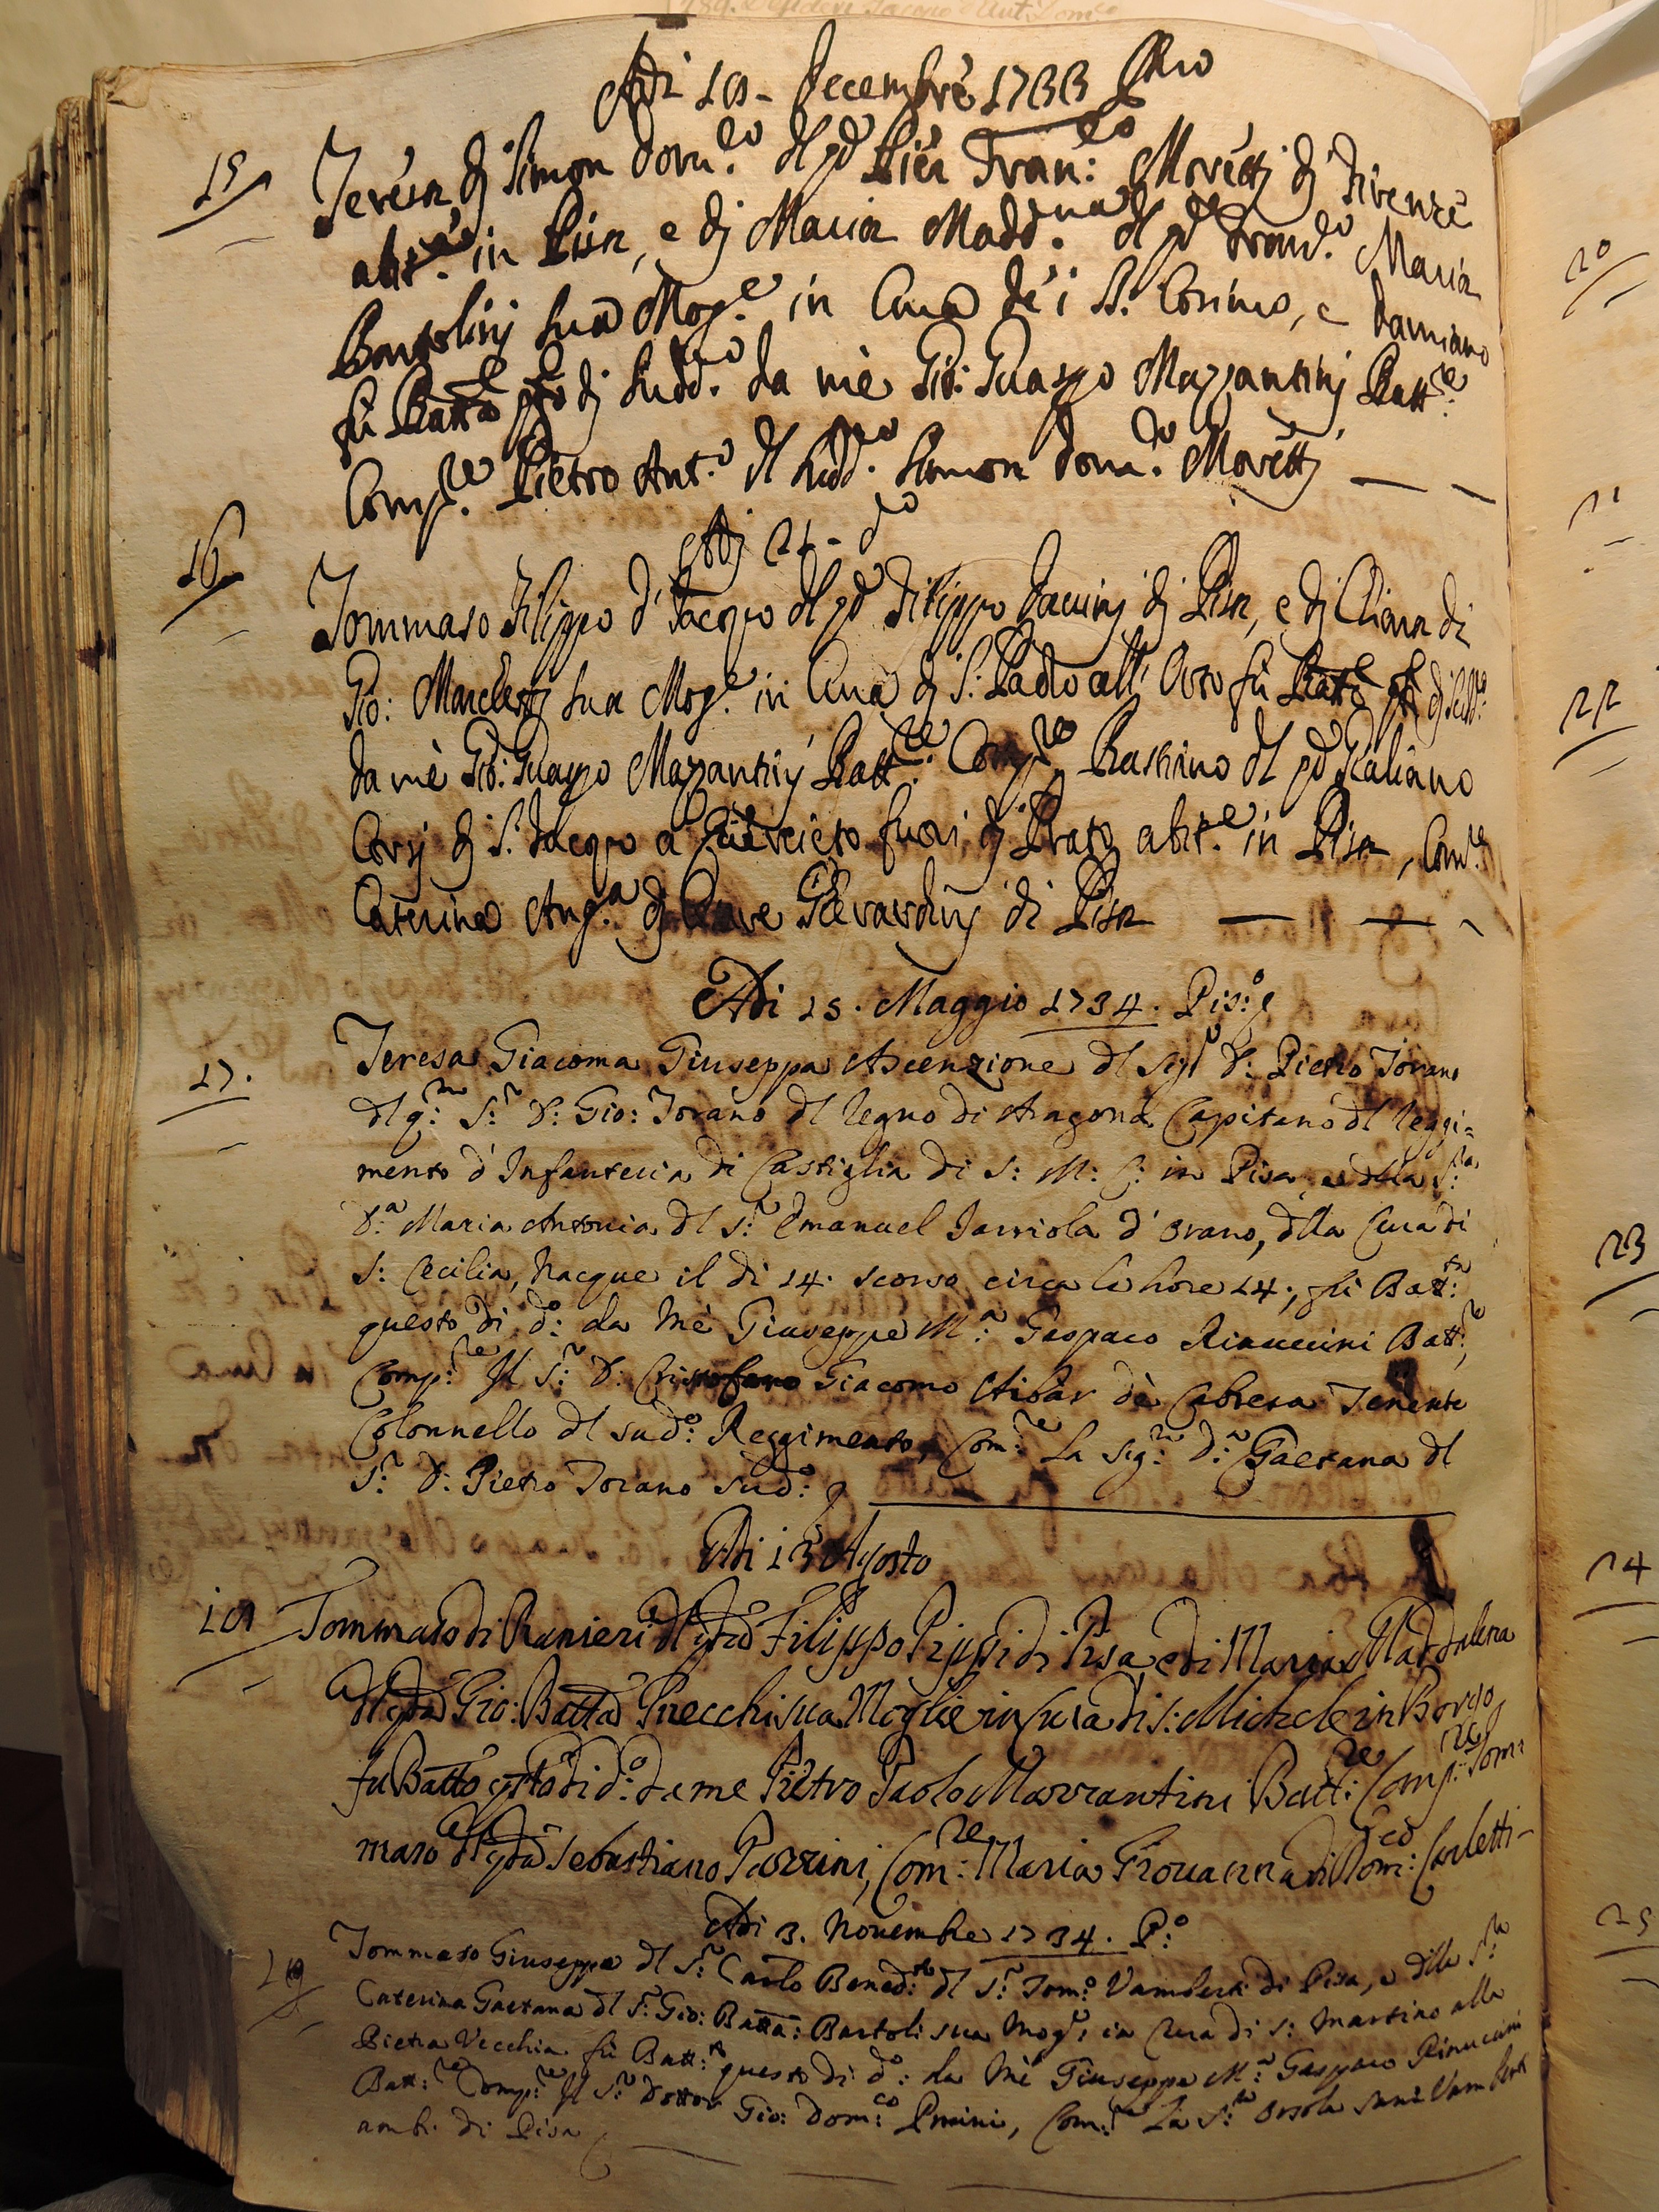 Adi 18 - Decembre 1733 P.no
15
Teresa di Simon Dom.co dl qd Pier Fran:co Moretti di Firenze
abit.e in Pisa, e di Maria Madd.na dl qd Fran.co Maria
Bongolini sua Mog.e in Cura de i SS. Cosimo, e Damiano
fù Batta di Sudd.o da mè Gio: Guaspo Mazzantinj Batt:re
Comp.re Pietro Ant.o dl Sudd.o Simon Dom.co Moretti
16
Adj 21 - do
Tommaso Filippo d' Jacopo dl qd Filippo Pacinj di Pisa, e di Chiara di
Gio: Marchetti sua Mog.e in Cura di S: Paolo all' Orto fù Batto di Sudd.o
da mè Gio: Guaspo Mazzantinj Batt:re Comp.re Bastiano dl qd Giuliano
Corsj di S. Jacopo a fuori di Prato abit.e in Pisa, Com.re
Caterina Ang.a di Gherardinj di Pisa
Adi 15. Maggio 1734. Pis:o
17.
Teresa Giacoma Giuseppa Ascenzione dl Sig.r D: Pietro Torano
dl q:m S:r D: Gio: Torano dl Regno di Aragona Capitano dl Reggi=
mento d' Infanteria di Castiglia di S: M: C: in Pisa, e della S:ra
D:a Maria Antonia dl S:r Emanuel Jarriola d' Orano, dlla Cura di
S: Cecilia, Nacque il dì 14. scorso circa le hore 24; fù Bat:ta
questo dì d:o da Mè Giuseppe M:a Gasparo Rinuccini Batt:re,
Comp:re Il S:r D: Cristofano Giacomo Aibar dè Cabrera Tenente
Colonnello dl sud:o Reggimento, Com:re La Sig:ra D:a Gaetana dl
S:r D: Pietro Torano sud:o
Adi 13 Agosto
18
Tommaso di Ranieri dl qd Filippo Pippi di Pisa e di Maria Maddalena
dl qd Gio: Batta Puecchi sua Moglie in Cura di S: Michele in Borgo
fu Batto qsto di d:o da me Pietro Paolo Mazzantini Batt:re Comp:re Tom=
maso dl qd Sebastiano Parrini, Com:re Maria Giovanna di Dom:co Carletti -
Adi 3. Novembre 1734. P:o
19
Tommaso Giuseppe dl S:r Carlo Bened:to dl S:r Tom:o Vamberti di Pisa, e della S:ra
Caterina Gaetana dl S:r Gio: Batta: Bartoli sua Mog:e in Cura di S: Martino alla
Pietra Vecchia fù Batt:to questo dì d:o da Mè Giuseppe M:a Gasparo Rinuccini
Batt:re Comp:re Il S:r Dottor Gio: Dom:co Pmini, Com:re La S:ra Orsola Vamberti
ambi di Pisa
20
21
22
23
24
25